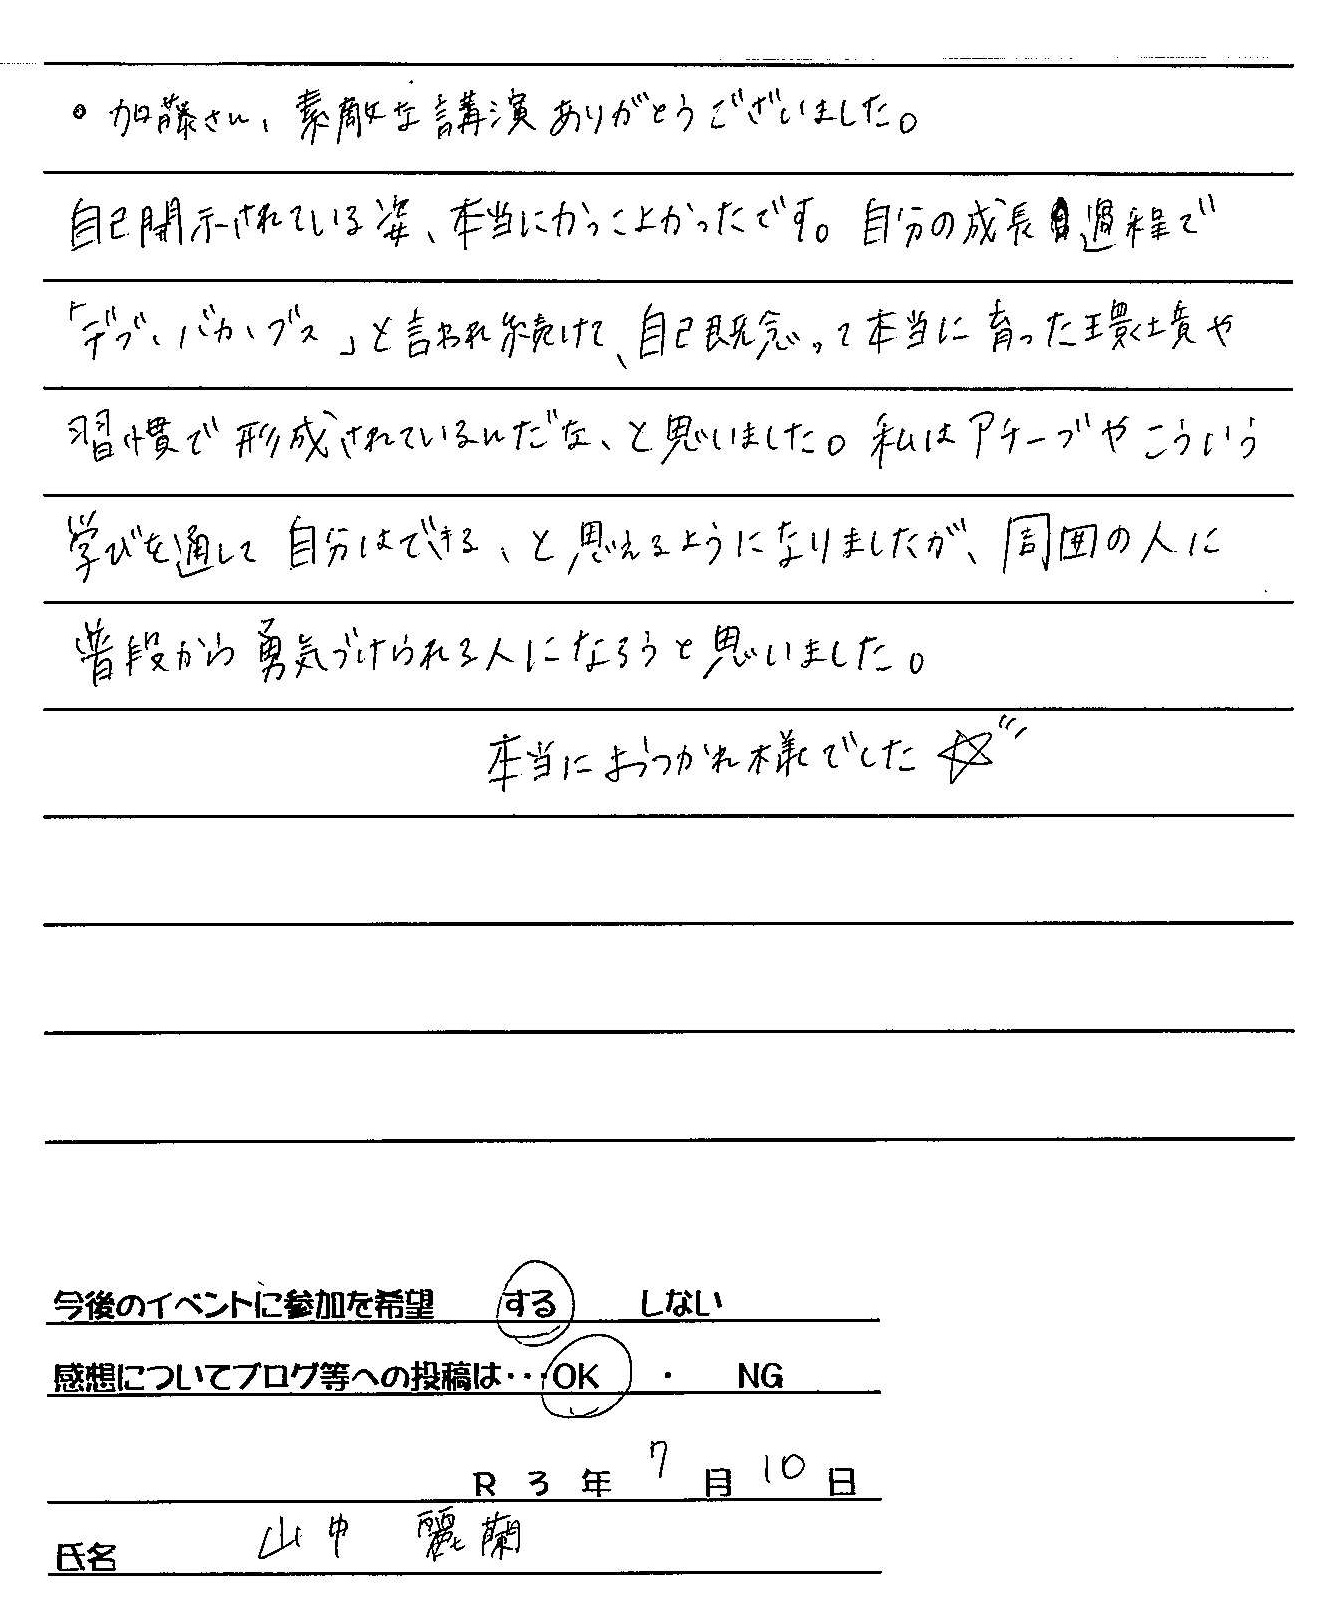 。加藤さん、素敵な講演ありがとうございました。
自己開示されている姿、本当にかっこよかったです。自分の成長過程で
「デブ、バカ、ブス」と言われ続けて、自己既念って本当に育った環境や
習慣で形成されているんだな、と思いました。私はアチーブやこういう
学びを通して自分はできる、と思えるようになりましたが、周囲の人に
普段から勇気づけられる人になろうと思いました。
本当におつかれ様でした☆
今後のイベントに参加を希望 する しない
感想についてブログ等への投稿は・・・OK ・ NG
R 3 年 7 月 10 日
氏名 山中 麗蘭